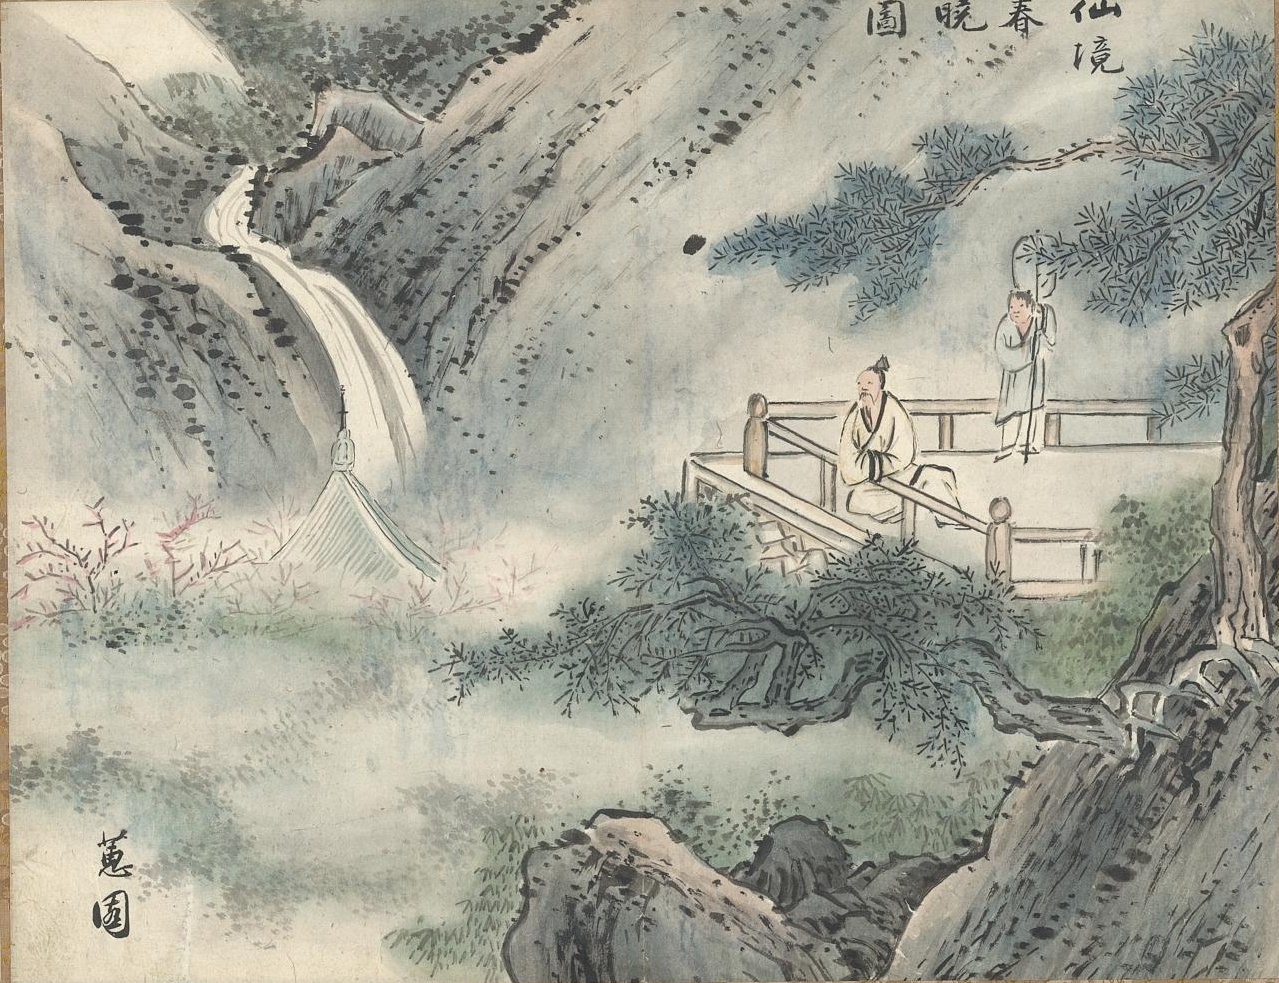 仙境
春
曉
圖
蕙園